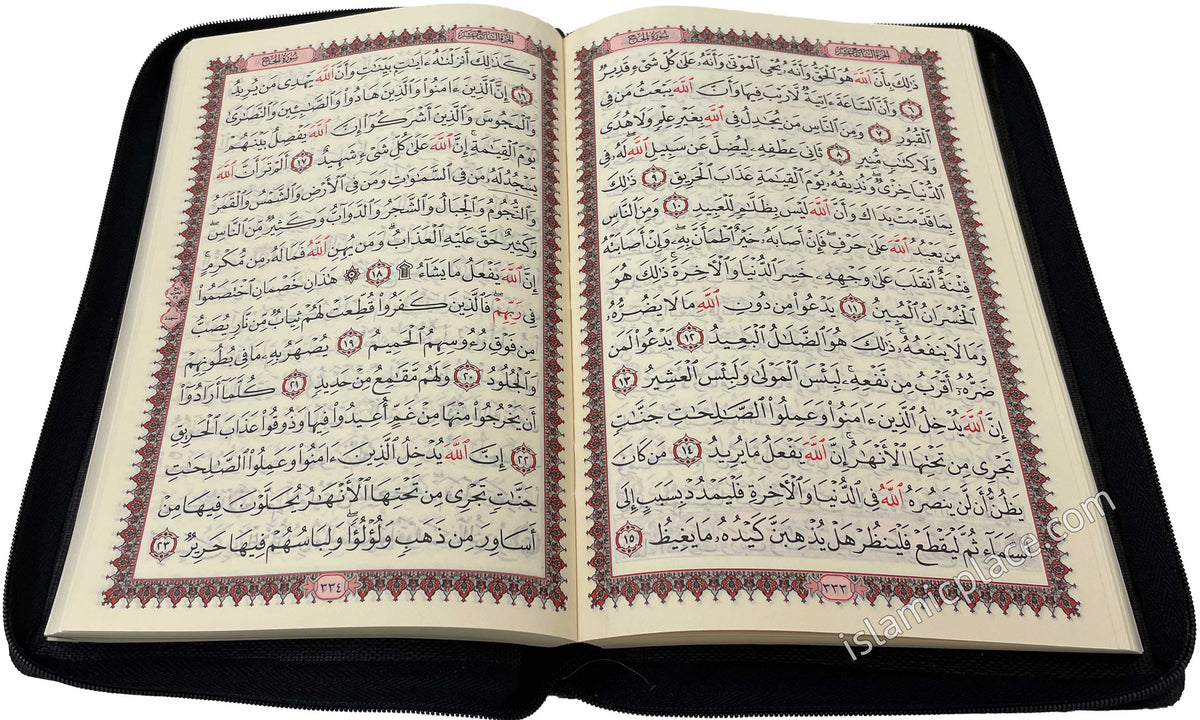 سورة الحج
الجزء السابع عشر
ذَٰلِكَ بِأَنَّ ٱللَّهَ هُوَ ٱلْحَقُّ وَأَنَّهُۥ يُحْىِ ٱلْمَوْتَىٰ وَأَنَّهُۥ عَلَىٰ كُلِّ شَىْءٍ قَدِيرٌ
٦ وَأَنَّ ٱلسَّاعَةَ ءَاتِيَةٌ لَّا رَيْبَ فِيهَا وَأَنَّ ٱللَّهَ يَبْعَثُ مَن فِى
ٱلْقُبُورِ ٧ وَمِنَ ٱلنَّاسِ مَن يُجَٰدِلُ فِى ٱللَّهِ بِغَيْرِ عِلْمٍ وَلَا هُدًى
وَلَا كِتَٰبٍ مُّنِيرٍ ٨ ثَانِىَ عِطْفِهِۦ لِيُضِلَّ عَن سَبِيلِ ٱللَّهِ لَهُۥ فِى
ٱلدُّنْيَا خِزْىٌ وَنُذِيقُهُۥ يَوْمَ ٱلْقِيَٰمَةِ عَذَابَ ٱلْحَرِيقِ ٩ ذَٰلِكَ
بِمَا قَدَّمَتْ يَدَاكَ وَأَنَّ ٱللَّهَ لَيْسَ بِظَلَّٰمٍ لِّلْعَبِيدِ ١٠ وَمِنَ ٱلنَّاسِ
مَن يَعْبُدُ ٱللَّهَ عَلَىٰ حَرْفٍ فَإِنْ أَصَابَهُۥ خَيْرٌ ٱطْمَأَنَّ بِهِۦ وَإِنْ أَصَابَتْهُ
فِتْنَةٌ ٱنقَلَبَ عَلَىٰ وَجْهِهِۦ خَسِرَ ٱلدُّنْيَا وَٱلْءَاخِرَةَ ذَٰلِكَ هُوَ
ٱلْخُسْرَانُ ٱلْمُبِينُ ١١ يَدْعُوا۟ مِن دُونِ ٱللَّهِ مَا لَا يَضُرُّهُۥ
وَمَا لَا يَنفَعُهُۥ ذَٰلِكَ هُوَ ٱلضَّلَٰلُ ٱلْبَعِيدُ ١٢ يَدْعُوا۟ لَمَن
ضَرُّهُۥٓ أَقْرَبُ مِن نَّفْعِهِۦ لَبِئْسَ ٱلْمَوْلَىٰ وَلَبِئْسَ ٱلْعَشِيرُ ١٣
إِنَّ ٱللَّهَ يُدْخِلُ ٱلَّذِينَ ءَامَنُوا۟ وَعَمِلُوا۟ ٱلصَّٰلِحَٰتِ جَنَّٰتٍ
تَجْرِى مِن تَحْتِهَا ٱلْأَنْهَٰرُ إِنَّ ٱللَّهَ يَفْعَلُ مَا يُرِيدُ ١٤ مَن كَانَ
يَظُنُّ أَن لَّن يَنصُرَهُ ٱللَّهُ فِى ٱلدُّنْيَا وَٱلْءَاخِرَةِ فَلْيَمْدُدْ بِسَبَبٍ إِلَى
ٱلسَّمَآءِ ثُمَّ لْيَقْطَعْ فَلْيَنظُرْ هَلْ يُذْهِبَنَّ كَيْدُهُۥ مَا يَغِيظُ ١٥
٣٣٣
الجزء السابع عشر
سورة الحج
وَكَذَٰلِكَ أَنزَلْنَٰهُ ءَايَٰتٍۭ بَيِّنَٰتٍ وَأَنَّ ٱللَّهَ يَهْدِى مَن يُرِيدُ
١٦ إِنَّ ٱلَّذِينَ ءَامَنُوا۟ وَٱلَّذِينَ هَادُوا۟ وَٱلصَّٰبِـِٔينَ وَٱلنَّصَٰرَىٰ
وَٱلْمَجُوسَ وَٱلَّذِينَ أَشْرَكُوٓا۟ إِنَّ ٱللَّهَ يَفْصِلُ بَيْنَهُمْ
يَوْمَ ٱلْقِيَٰمَةِ إِنَّ ٱللَّهَ عَلَىٰ كُلِّ شَىْءٍ شَهِيدٌ ١٧ أَلَمْ تَرَ أَنَّ ٱللَّهَ
يَسْجُدُ لَهُۥ مَن فِى ٱلسَّمَٰوَٰتِ وَمَن فِى ٱلْأَرْضِ وَٱلشَّمْسُ وَٱلْقَمَرُ
وَٱلنُّجُومُ وَٱلْجِبَالُ وَٱلشَّجَرُ وَٱلدَّوَآبُّ وَكَثِيرٌ مِّنَ ٱلنَّاسِ
وَكَثِيرٌ حَقَّ عَلَيْهِ ٱلْعَذَابُ وَمَن يُهِنِ ٱللَّهُ فَمَا لَهُۥ مِن مُّكْرِمٍ
إِنَّ ٱللَّهَ يَفْعَلُ مَا يَشَآءُ ۩ ١٨ ۞ هَٰذَانِ خَصْمَانِ ٱخْتَصَمُوا۟
فِى رَبِّهِمْ فَٱلَّذِينَ كَفَرُوا۟ قُطِّعَتْ لَهُمْ ثِيَابٌ مِّن نَّارٍ يُصَبُّ
مِن فَوْقِ رُءُوسِهِمُ ٱلْحَمِيمُ ١٩ يُصْهَرُ بِهِۦ مَا فِى بُطُونِهِمْ
وَٱلْجُلُودُ ٢٠ وَلَهُم مَّقَٰمِعُ مِنْ حَدِيدٍ ٢١ كُلَّمَآ أَرَادُوٓا۟
أَن يَخْرُجُوا۟ مِنْهَا مِنْ غَمٍّ أُعِيدُوا۟ فِيهَا وَذُوقُوا۟ عَذَابَ ٱلْحَرِيقِ
٢٢ إِنَّ ٱللَّهَ يُدْخِلُ ٱلَّذِينَ ءَامَنُوا۟ وَعَمِلُوا۟ ٱلصَّٰلِحَٰتِ
جَنَّٰتٍ تَجْرِى مِن تَحْتِهَا ٱلْأَنْهَٰرُ يُحَلَّوْنَ فِيهَا مِنْ
أَسَاوِرَ مِن ذَهَبٍ وَلُؤْلُؤًا وَلِبَاسُهُمْ فِيهَا حَرِيرٌ ٢٣
٣٣٤
islamicplace.com